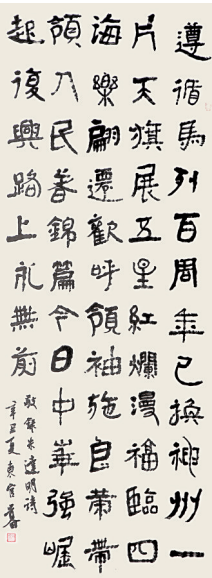 遵循馬列百周年已換神州一
片天旗展五星紅爛漫福臨四
海樂翩遷歡呼領袖施良策帶
領人民奏錦篇今日中華強崛
起復興路上永無前
敬錄朱達明詩
辛丑夏東官書